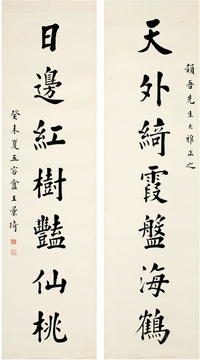 韻吾先生大雅正之
天外綺霞盤海鶴
日邊紅樹豔仙桃
癸未夏五
王景琦